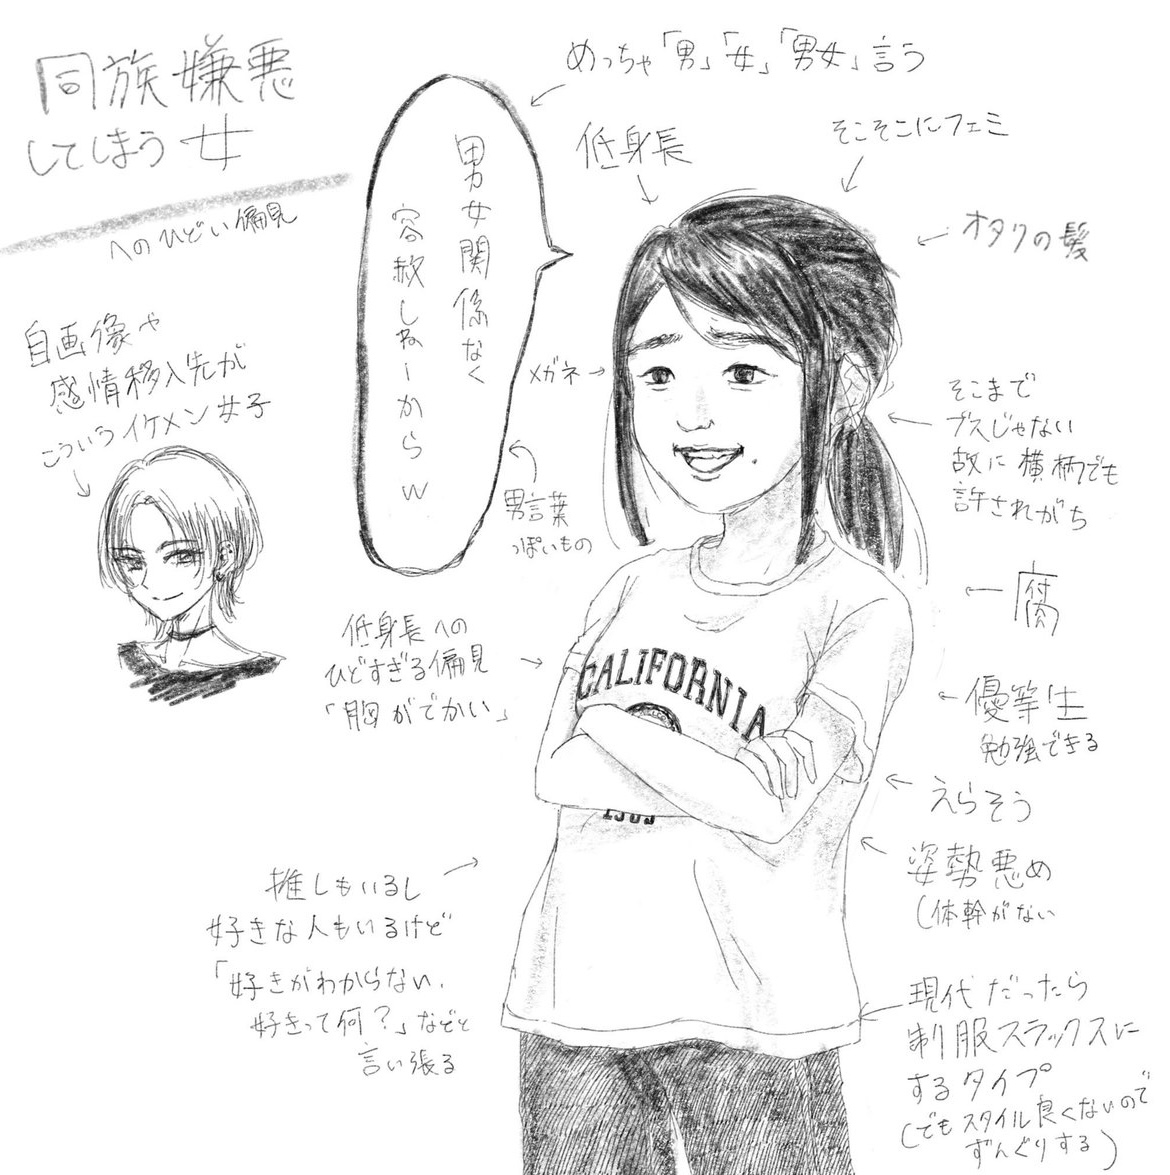 同族嫌悪
してしまう女
へのひどい偏見
めっちゃ「男」「女」「男女」言う
低身長
そこそこにフェミ
オタクの髪
男女関係なく
容赦しねーからw
メガネ
男言葉
っぽいもの
自画像や
感情移入先が
こういうイケメン女子
そこまで
ブスじゃない
故に横柄でも
許されがち
腐
低身長への
ひどすぎる偏見
「胸がでかい」
CALIFORNIA
優等生
勉強できる
えらそう
姿勢悪め
(体幹がない
推しもいるし
好きな人もいるけど
「好きがわからない、
好きって何?」などと
言い張る
現代だったら
制服スラックスに
するタイプ
(でもスタイル良くないので
ずんぐりする)